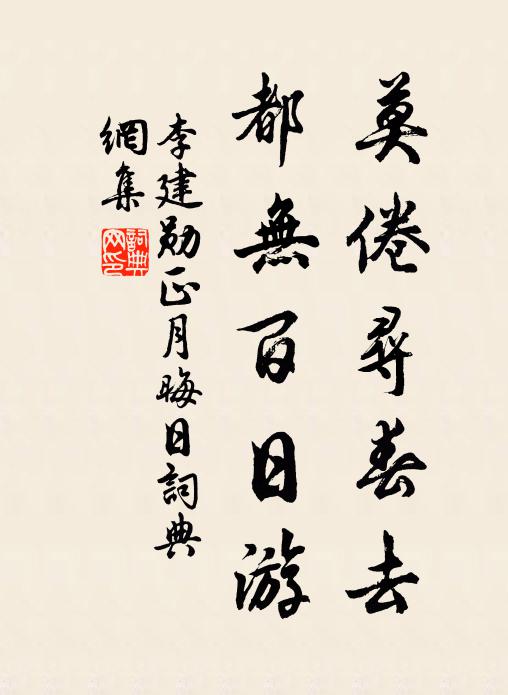 莫倦尋春去
都無百日游
李建勋正月晦日詞典
網集
詞典
网印